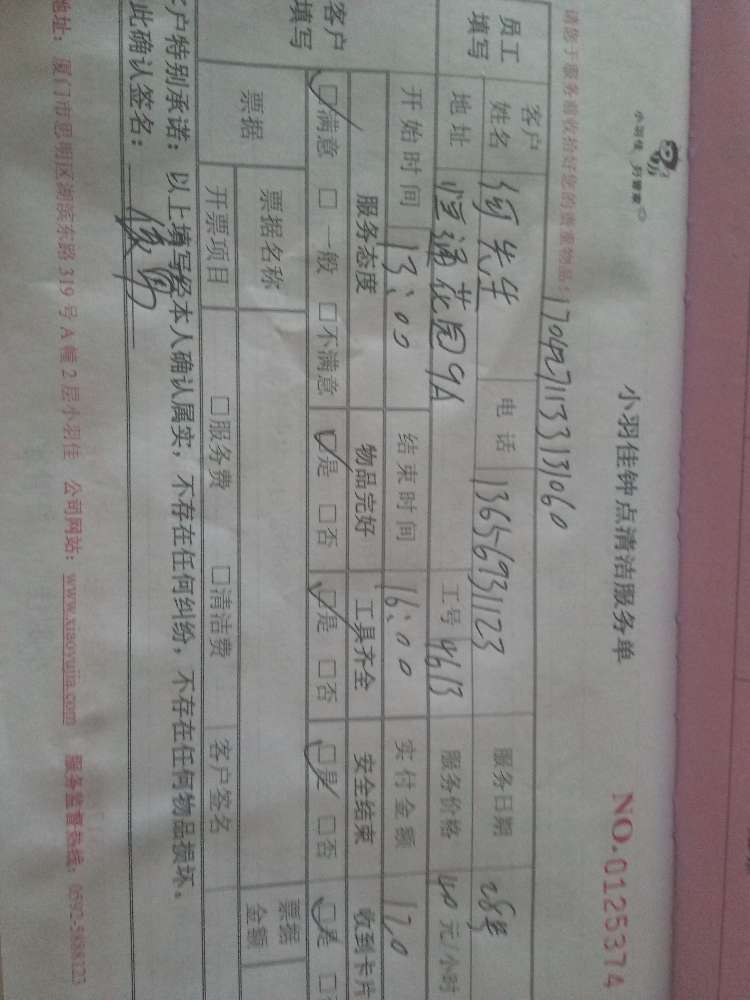 小羽佳 好管家
小羽佳钟点清洁服务单
NO.0125374
请您于服务前收拾好您的贵重物品！170427113313060
员工填写 客户姓名 何先生 电话 13656931123 服务日期 28号
地址 恒通花园9A 工号 4613 服务价格 40元/小时
开始时间 13:00 结束时间 16:00 实付金额 120
客户填写 服务态度 物品完好 工具齐全 安全结束 收到卡片
☑满意 □一般 □不满意 ☑是 □否 ☑是 □否 ☑是 □否 ☑是 □
票据 票据名称 票据金额
开票项目 □服务费 □清洁费 客户签名
户特别承诺：以上填写经本人确认属实，不存在任何纠纷，不存在任何物品损坏。
此确认签名：
地址：厦门市思明区湖滨东路319号A幢2层小羽佳 公司网站：www.xiaoyujia.com 服务监督热线：0592-5888123